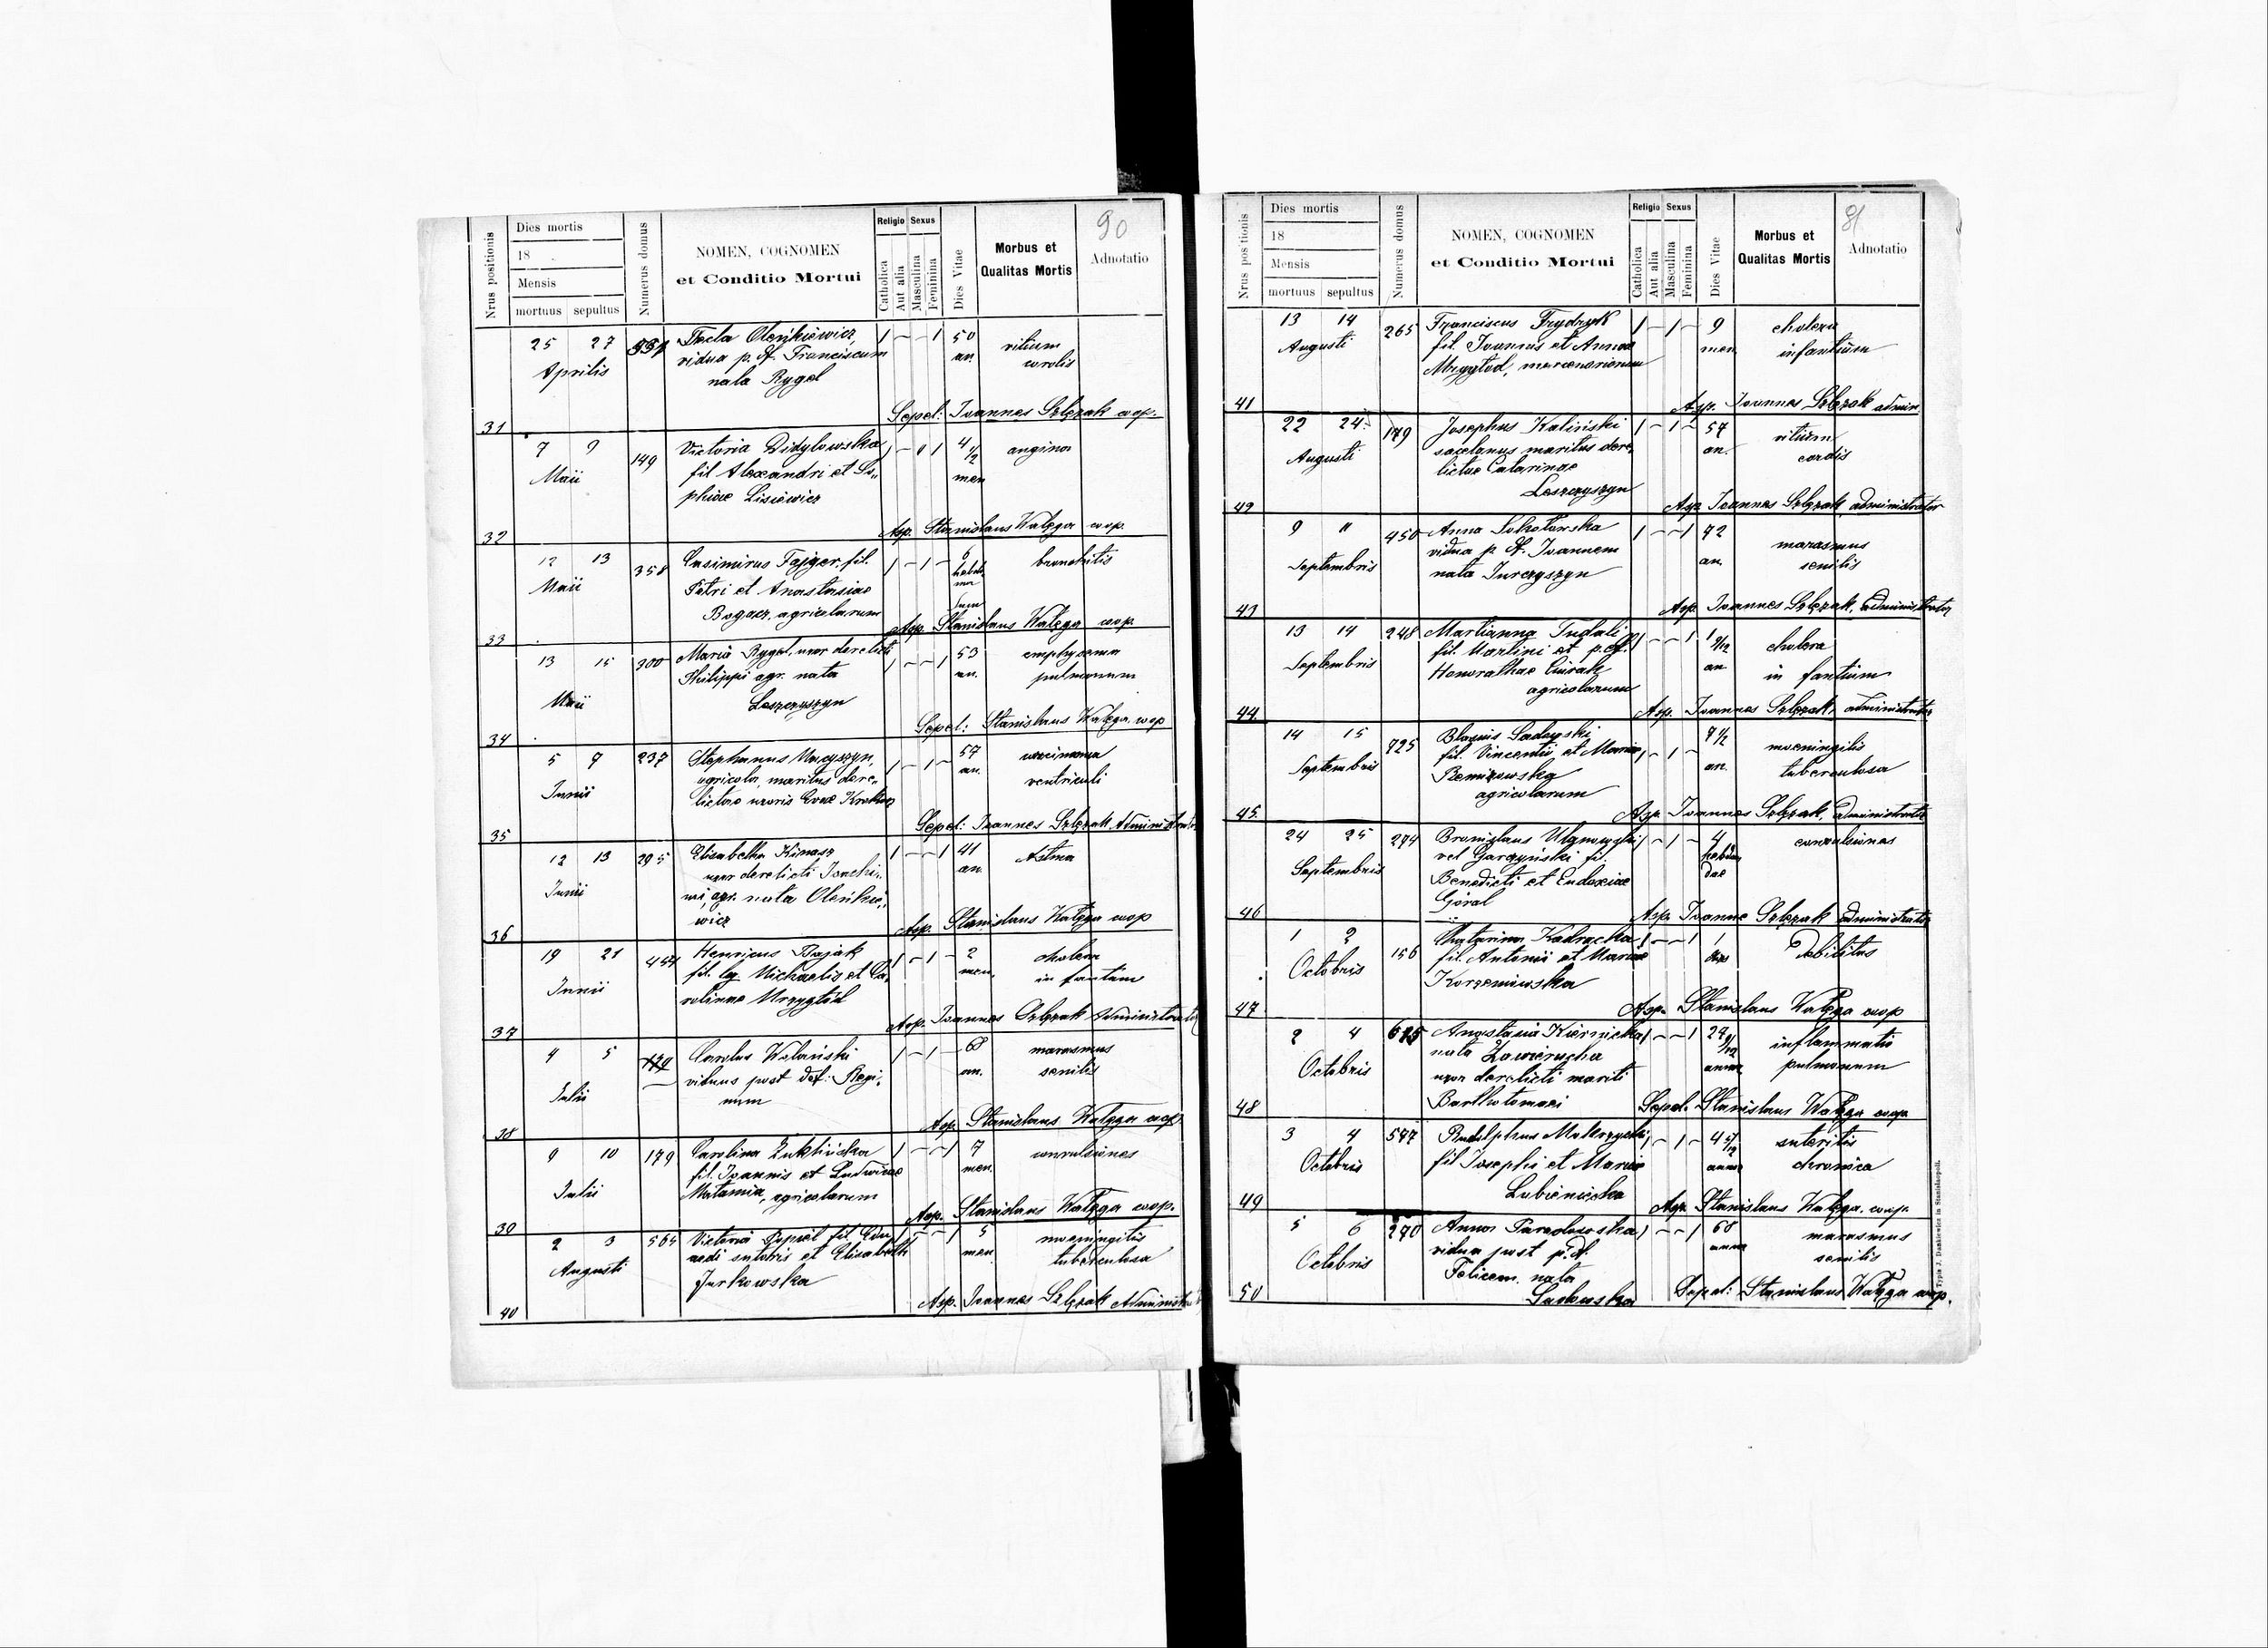 90
Nrus positionis
Dies mortis
18
Mensis
mortuus sepultus
Numerus domus
NOMEN, COGNOMEN
et Conditio Mortui
Religio Sexus
Catholica
Aut alia
Masculina
Feminina
Dies Vitae
Morbus et
Qualitas Mortis
Adnotatio
25 27 Tecla Oleńkiewicz, 1 - - 1 50 vitium
Aprilis vidua p. df. Franciscum an. cordis
nata Rygel
31 Sepel: Joannes Szlęzak coop.
7 9 149 Victoria Didylowska 4 1/2 angina
Maii fil. Alexandri et So„ men
phiae Lisiewicz
32 Asp. Stanislaus Wałęga coop.
12 13 358 Casimirus Fajger fil. 1 - 1 - 6 bronchitis
Maii Petri et Anastasiae
Bogacz, agricolarum
33 Asp. Stanislaus Wałęga coop
13 15 300 Maria Rygel, uxor derelicti 1 - - 1 53 emphysema
Maii Philippi agr. nata an. pulmonum
Leszczyszyn
34 Sepel: Stanislaus Wałęga coop
5 7 237 Stephanus 1 - 1 - 57 carcinoma
Junii agricola, maritus dere, an. ventriculi
lictae uxoris Evae
35 Sepel: Joannes Szlęzak Administrator
12 13 295 Elisabetha Kinasz 1 - - 1 41 Astma
Junii uxor derelicti Joachi„ an.
mi, agr. nata Oleńkie„
wicz
36 Asp. Stanislaus Wałęga coop
19 21 454 Henricus Bojak 1 - 1 - 2 cholera
Junii fil. lg. Michaelis et Ca, men. infantum
rolinae Mrzygłód
37 Asp. Joannes Szlęzak Administrator
4 5 Carolus Wolański 1 - 1 - 68 marasmus
Julii viduus post def: Regi, an. senilis
nam
38 Asp. Stanislaus Wałęga coop
9 10 179 Carolina 1 - - 1 7 convulsiones
Julii fil. Joannis et Ludovicae men.
agricolarum
39 Asp. Stanislaus Wałęga coop.
2 3 565 Victoria Popiel fil. Edu 1 - - 1 5 meningitis
Augusti ardi sutoris et Elisabeth men. tuberculosa
Jurkowska
40 Asp. Joannes Szlęzak Administrator
Nrus positionis
Dies mortis
18
Mensis
mortuus sepultus
Numerus domus
NOMEN, COGNOMEN
et Conditio Mortui
Religio Sexus
Catholica
Aut alia
Masculina
Feminina
Dies Vitae
Morbus et
Qualitas Mortis
Adnotatio
13 14 265 Franciscus Frydryk 1 - 1 - 9 cholera
Augusti fil. Joannis et Annae men. infantium
Mrzygłod, mercenariorum
41 Asp. Joannes Szlęzak admin.
22 24 179 Josephus Kaliński 1 - 1 - 57 vitium
Augusti maritus dere„ an. cordis
lictae Catarinae
Leszczyszyn
42 Asp Joannes Szlęzak administrator
9 11 450 Anna Sokołowska 1 - - 1 72 marasmus
Septembris vidua p. df. Joannem an. senilis
nata Jurczyszyn
43 Asp. Joannes Szlęzak, administrator
13 14 248 Marianna 1 - - 1 1 cholera
Septembris fil. Martini et p. df. an infantium
Honorathae
agricolarum
44 Asp. Joannes Szlęzak, administrator
14 15 725 Blasius Sadowski 1 - 1 - 7 1/2 meningitis
Septembris fil. Vincentii et Mariae an. tuberculosa
agricolarum
45 Asp. Joannes Szlęzak, administrator
24 25 274 Bronislaus 1 - 1 - 4 convulsiones
Septembris vel Garczyński fil. hebdom
Benedicti et Eudoxiae dae
Góral
46 Asp. Joannes Szlęzak administrator
1 2 156 Chatarina Kądracka 1 - - 1 1 Debilitas
Octobris fil. Antonii et Mariae dies
Korzeniowska
47 Asp. Stanislaus Wałęga coop
2 4 675 Anastasia Kiernicka 1 - - 1 inflammatio
Octobris nata Zawierucha annor pulmonum
uxor derelicti mariti
Bartholomaei
48 Sepel. Stanislaus Wałęga coop
3 4 577 Rudolphus 1 - 1 - enteritis
Octobris fil Josephi et Mariae annor chronica
Lubieniecka
49 Asp. Stanislaus Wałęga. coop.
5 6 270 Anna 1 - - 1 68 marasmus
Octobris vidua post p. df. annor senilis
Felicem nata
Sadowska
50 Sepel: Stanislaus Wałęga coop.
Typis J. Dankiewicz in Stanislaopoli.